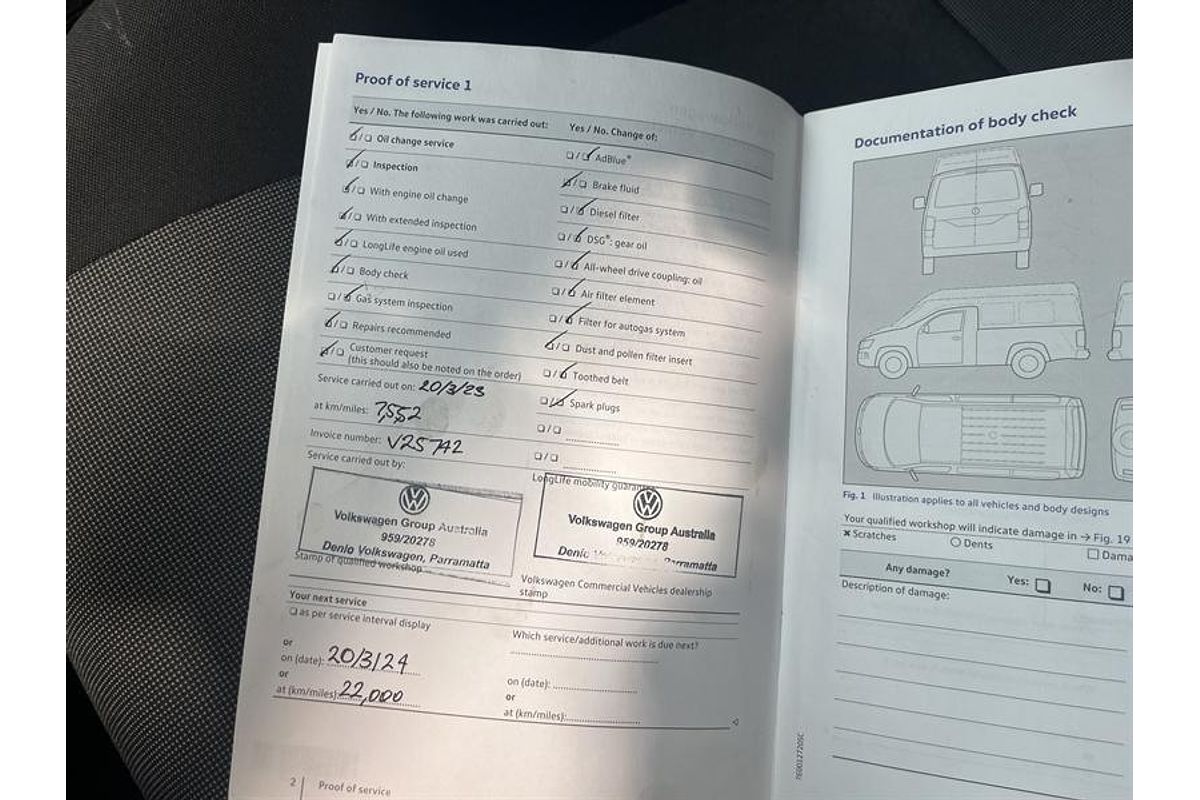 Proof of service 1
Yes / No. The following work was carried out:
☑/☐ Oil change service
☑/☐ Inspection
☑/☐ With engine oil change
☑/☐ With extended inspection
☑/☐ LongLife engine oil used
☑/☐ Body check
☐/☑ Gas system inspection
☑/☐ Repairs recommended
☑/☐ Customer request
(this should also be noted on the order)
Service carried out on: 20/3/23
at km/miles: 7,552
Invoice number: V25742
Service carried out by:
Volkswagen Group Australia
959/20278
Denlo Volkswagen, Parramatta
Stamp of qualified workshop
Yes / No. Change of:
☐/☑ AdBlue®
☑/☐ Brake fluid
☐/☑ Diesel filter
☐/☑ DSG®: gear oil
☐/☑ All-wheel drive coupling: oil
☐/☑ Air filter element
☐/☑ Filter for autogas system
☑/☐ Dust and pollen filter insert
☐/☑ Toothed belt
☐/☑ Spark plugs
☐/☐
☐/☐
LongLife mobility guarantee
Volkswagen Group Australia
959/20278
Parramatta
Volkswagen Commercial Vehicles dealership
stamp
Your next service
☐ as per service interval display
or
on (date): 20/3/24
or
at (km/miles): 22,000
Which service/additional work is due next?
on (date):
or
at (km/miles):
2 | Proof of service
Documentation of body check
Fig. 1 Illustration applies to all vehicles and body designs
Your qualified workshop will indicate damage in → Fig. 19
× Scratches ○ Dents ☐ Dama
Any damage? Yes: ☐ No: ☐
Description of damage: